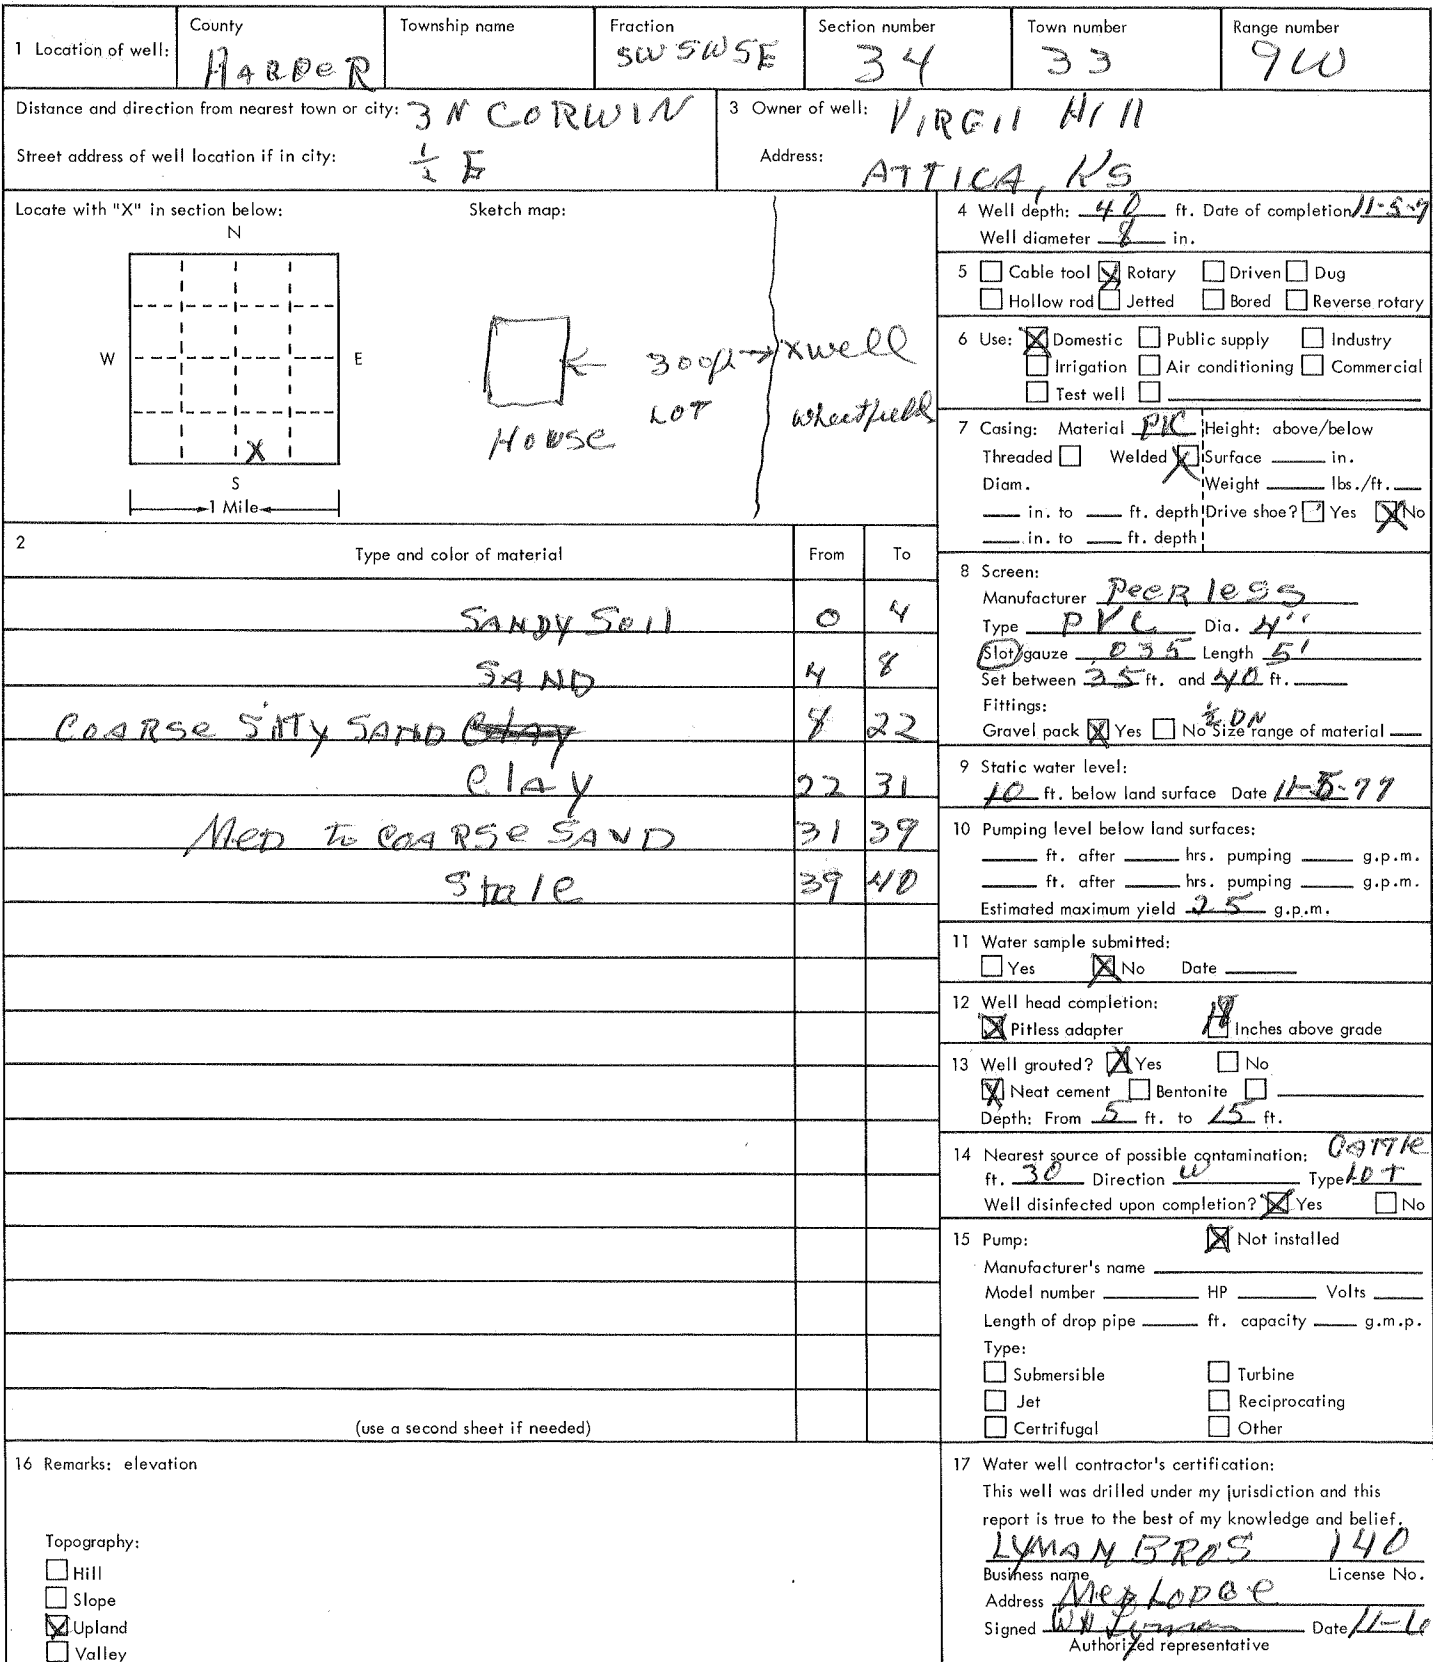 1 Location of well: County HARPER Township name Fraction SW SW SE Section number 34 Town number 33 Range number 9W
Distance and direction from nearest town or city: 3 N CORWIN
Street address of well location if in city: 1/2 E
3 Owner of well: VIRGIL Hill
Address: ATTICA, KS
Locate with "X" in section below:
N
W E
X
S
1 Mile
Sketch map:
300ft X well
LOT wheatfield
House
2 Type and color of material From To
SANDY Soil 0 4
SAND 4 8
COARSE SILTY SAND Clay 8 22
Clay 22 31
MED to COARSE SAND 31 39
Shale 39 40
(use a second sheet if needed)
4 Well depth: 40 ft. Date of completion 11-5-7
Well diameter 8 in.
5 Cable tool X Rotary Driven Dug
Hollow rod Jetted Bored Reverse rotary
6 Use: X Domestic Public supply Industry
Irrigation Air conditioning Commercial
Test well
7 Casing: Material PVC Height: above/below
Threaded Welded X Surface in.
Diam. Weight lbs./ft.
in. to ft. depth Drive shoe? Yes X No
in. to ft. depth
8 Screen:
Manufacturer PeerLess
Type PVC Dia. 4"
Slot/gauze .035 Length 5'
Set between 35 ft. and 40 ft.
Fittings:
Gravel pack X Yes No Size range of material 1/2 DN
9 Static water level:
10 ft. below land surface Date 11-5-77
10 Pumping level below land surfaces:
ft. after hrs. pumping g.p.m.
ft. after hrs. pumping g.p.m.
Estimated maximum yield 25 g.p.m.
11 Water sample submitted:
Yes X No Date
12 Well head completion:
X Pitless adapter 18 Inches above grade
13 Well grouted? X Yes No
X Neat cement Bentonite
Depth: From 5 ft. to 15 ft.
14 Nearest source of possible contamination: CATTLE
ft. 30 Direction W Type LOT
Well disinfected upon completion? X Yes No
15 Pump: X Not installed
Manufacturer's name
Model number HP Volts
Length of drop pipe ft. capacity g.m.p.
Type:
Submersible Turbine
Jet Reciprocating
Certrifugal Other
16 Remarks: elevation
Topography:
Hill
Slope
X Upland
Valley
17 Water well contractor's certification:
This well was drilled under my jurisdiction and this
report is true to the best of my knowledge and belief.
LYMAN BROS 140
Business name License No.
Address Med LODGE
Signed WH Lyman Date 11-6
Authorized representative